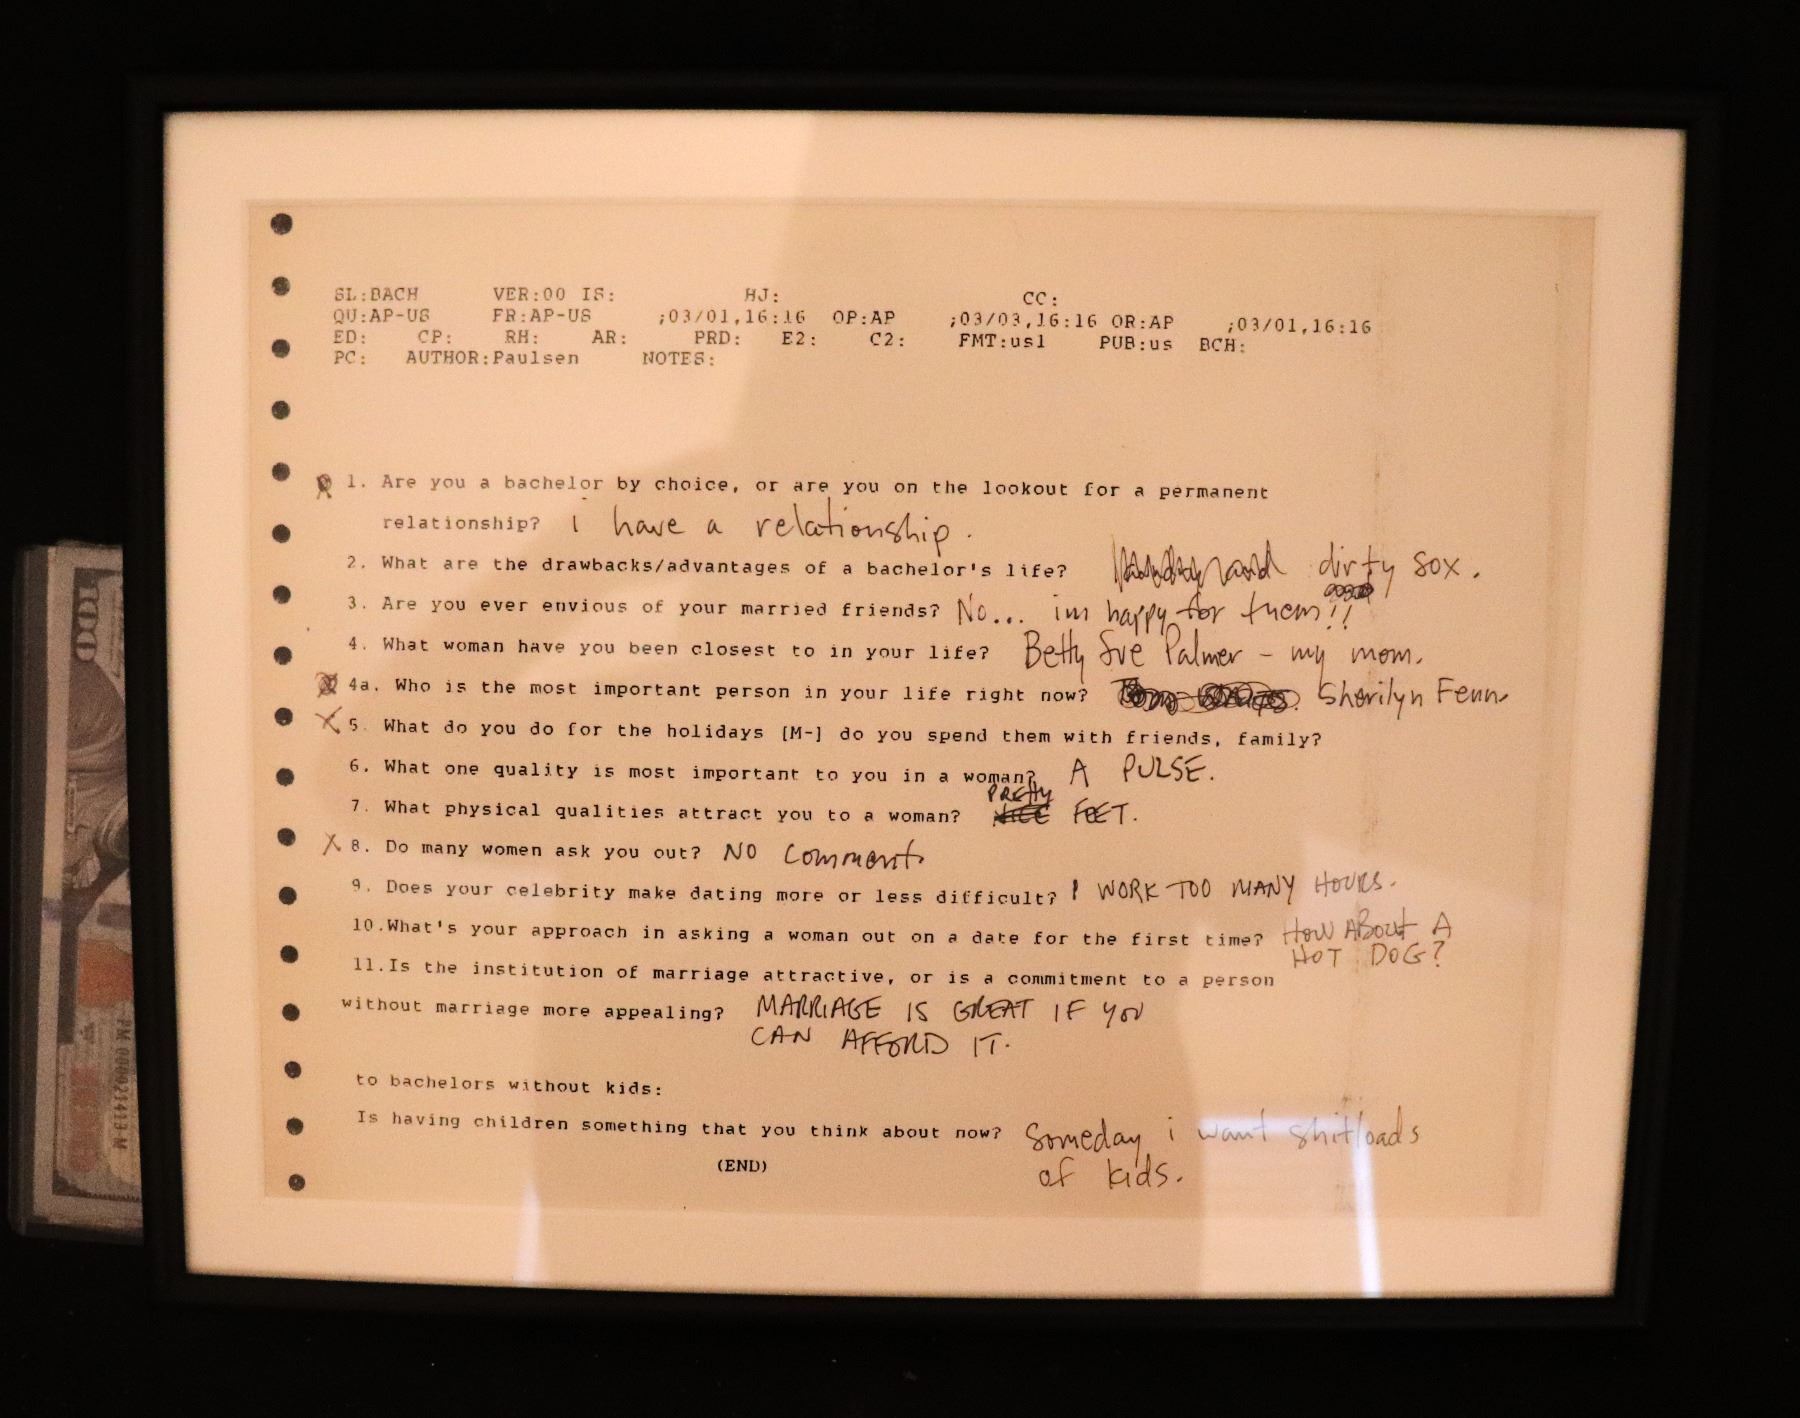 SL:BACH VER:00 IS: HJ: CC:
QU:AP-US FR:AP-US ;03/01,16:16 OP:AP ;03/03,16:16 OR:AP ;03/01,16:16
ED: CP: RH: AR: PRD: E2: C2: FMT:us1 PUB:us BCH:
PC: AUTHOR:Paulsen NOTES:
1. Are you a bachelor by choice, or are you on the lookout for a permanent
relationship? i have a relationship.
2. What are the drawbacks/advantages of a bachelor's life? dirty sox.
3. Are you ever envious of your married friends? No... im happy for them!!
4. What woman have you been closest to in your life? Betty Sue Palmer - my mom.
4a. Who is the most important person in your life right now? Sherilyn Fenn.
5. What do you do for the holidays [M-] do you spend them with friends, family?
6. What one quality is most important to you in a woman? A PULSE.
7. What physical qualities attract you to a woman? PRETTY FEET.
8. Do many women ask you out? NO comment.
9. Does your celebrity make dating more or less difficult? I WORK TOO MANY HOURS.
10.What's your approach in asking a woman out on a date for the first time? HOW ABOUT A
HOT DOG?
11.Is the institution of marriage attractive, or is a commitment to a person
without marriage more appealing? MARRIAGE IS GREAT IF YOU
CAN AFFORD IT.
to bachelors without kids:
Is having children something that you think about now? Someday i want shitloads
of kids.
(END)
100